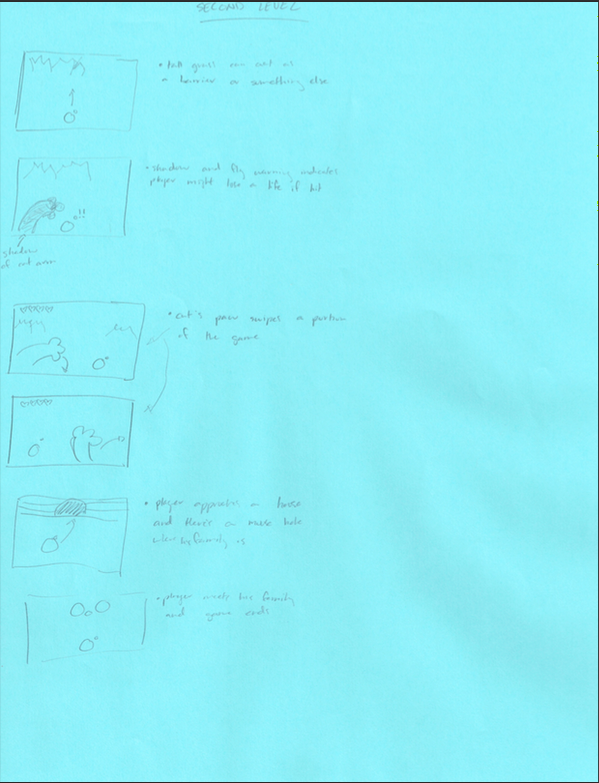 SECOND LEVEL
• tall grass can act as
a barrier or something else
• shadow and fly warning indicates
player might lose a life if hit
!!
shadow
of cat arm
• cat's paw swipes a portion
of the game
• player approaches a house
and there's a mouse hole
where his family is
• player meets his family
and game ends